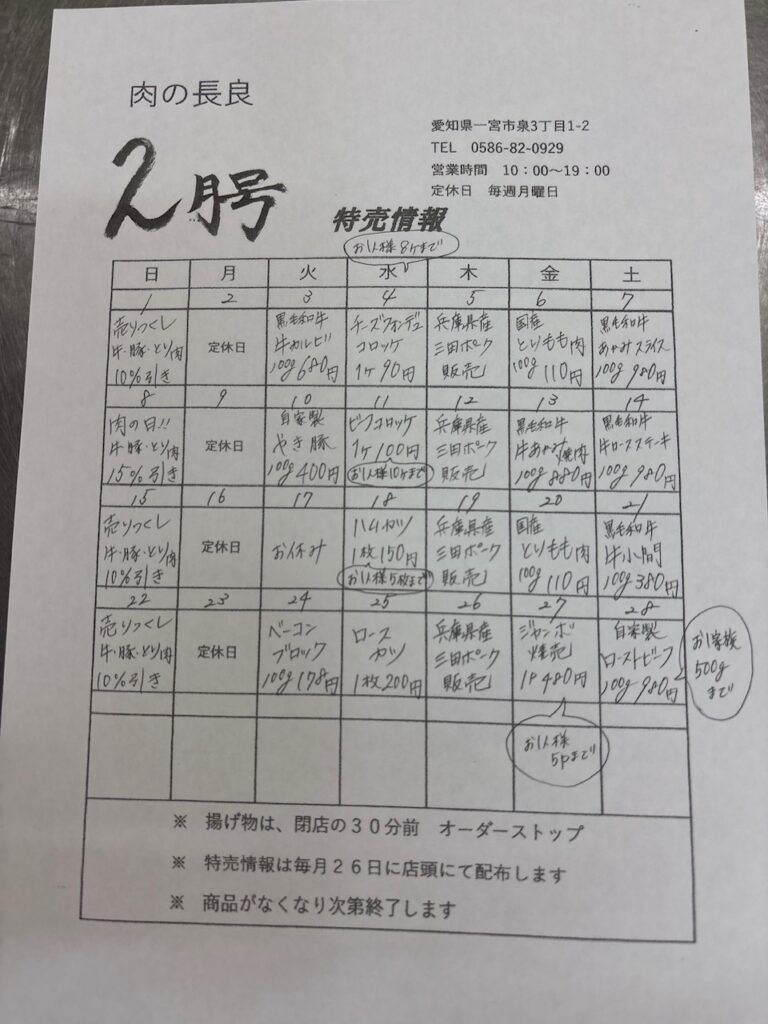 肉の長良
愛知県一宮市泉3丁目1-2
TEL 0586-82-0929
営業時間 10：00～19：00
定休日 毎週月曜日
2月号
特売情報
お1人様8ヶまで
日 月 火 水 木 金 土
1 2 3 4 5 6 7
売りつくし
牛・豚・とり肉
10%引き
定休日
黒毛和牛
牛カルビ
100g 680円
チーズフォンデュ
コロッケ
1ヶ 90円
兵庫県産
三田ポーク
販売
国産
とりもも肉
100g 110円
黒毛和牛
あかみスライス
100g 980円
8 9 10 11 12 13 14
肉の日!!
牛・豚・とり肉
15%引き
定休日
自家製
やき豚
100g 400円
ビーフコロッケ
1ヶ100円
お1人様10ヶまで
兵庫県産
三田ポーク
販売
黒毛和牛
牛あかみ焼肉
100g 880円
黒毛和牛
牛ロースステーキ
100g 980円
15 16 17 18 19 20 21
売りつくし
牛・豚・とり肉
10%引き
定休日
お休み
ハムカツ
1枚150円
お1人様5枚まで
兵庫県産
三田ポーク
販売
国産
とりもも肉
100g 110円
黒毛和牛
牛小間
100g 380円
22 23 24 25 26 27 28
売りつくし
牛・豚・とり肉
10%引き
定休日
ベーコン
ブロック
100g 178円
ロース
カツ
1枚200円
兵庫県産
三田ポーク
販売
ジャンボ
焼売
1P 480円
お1人様
5Pまで
自家製
ローストビーフ
100g 980円
お1家族
500g
まで
※ 揚げ物は、閉店の３０分前 オーダーストップ
※ 特売情報は毎月２６日に店頭にて配布します
※ 商品がなくなり次第終了します